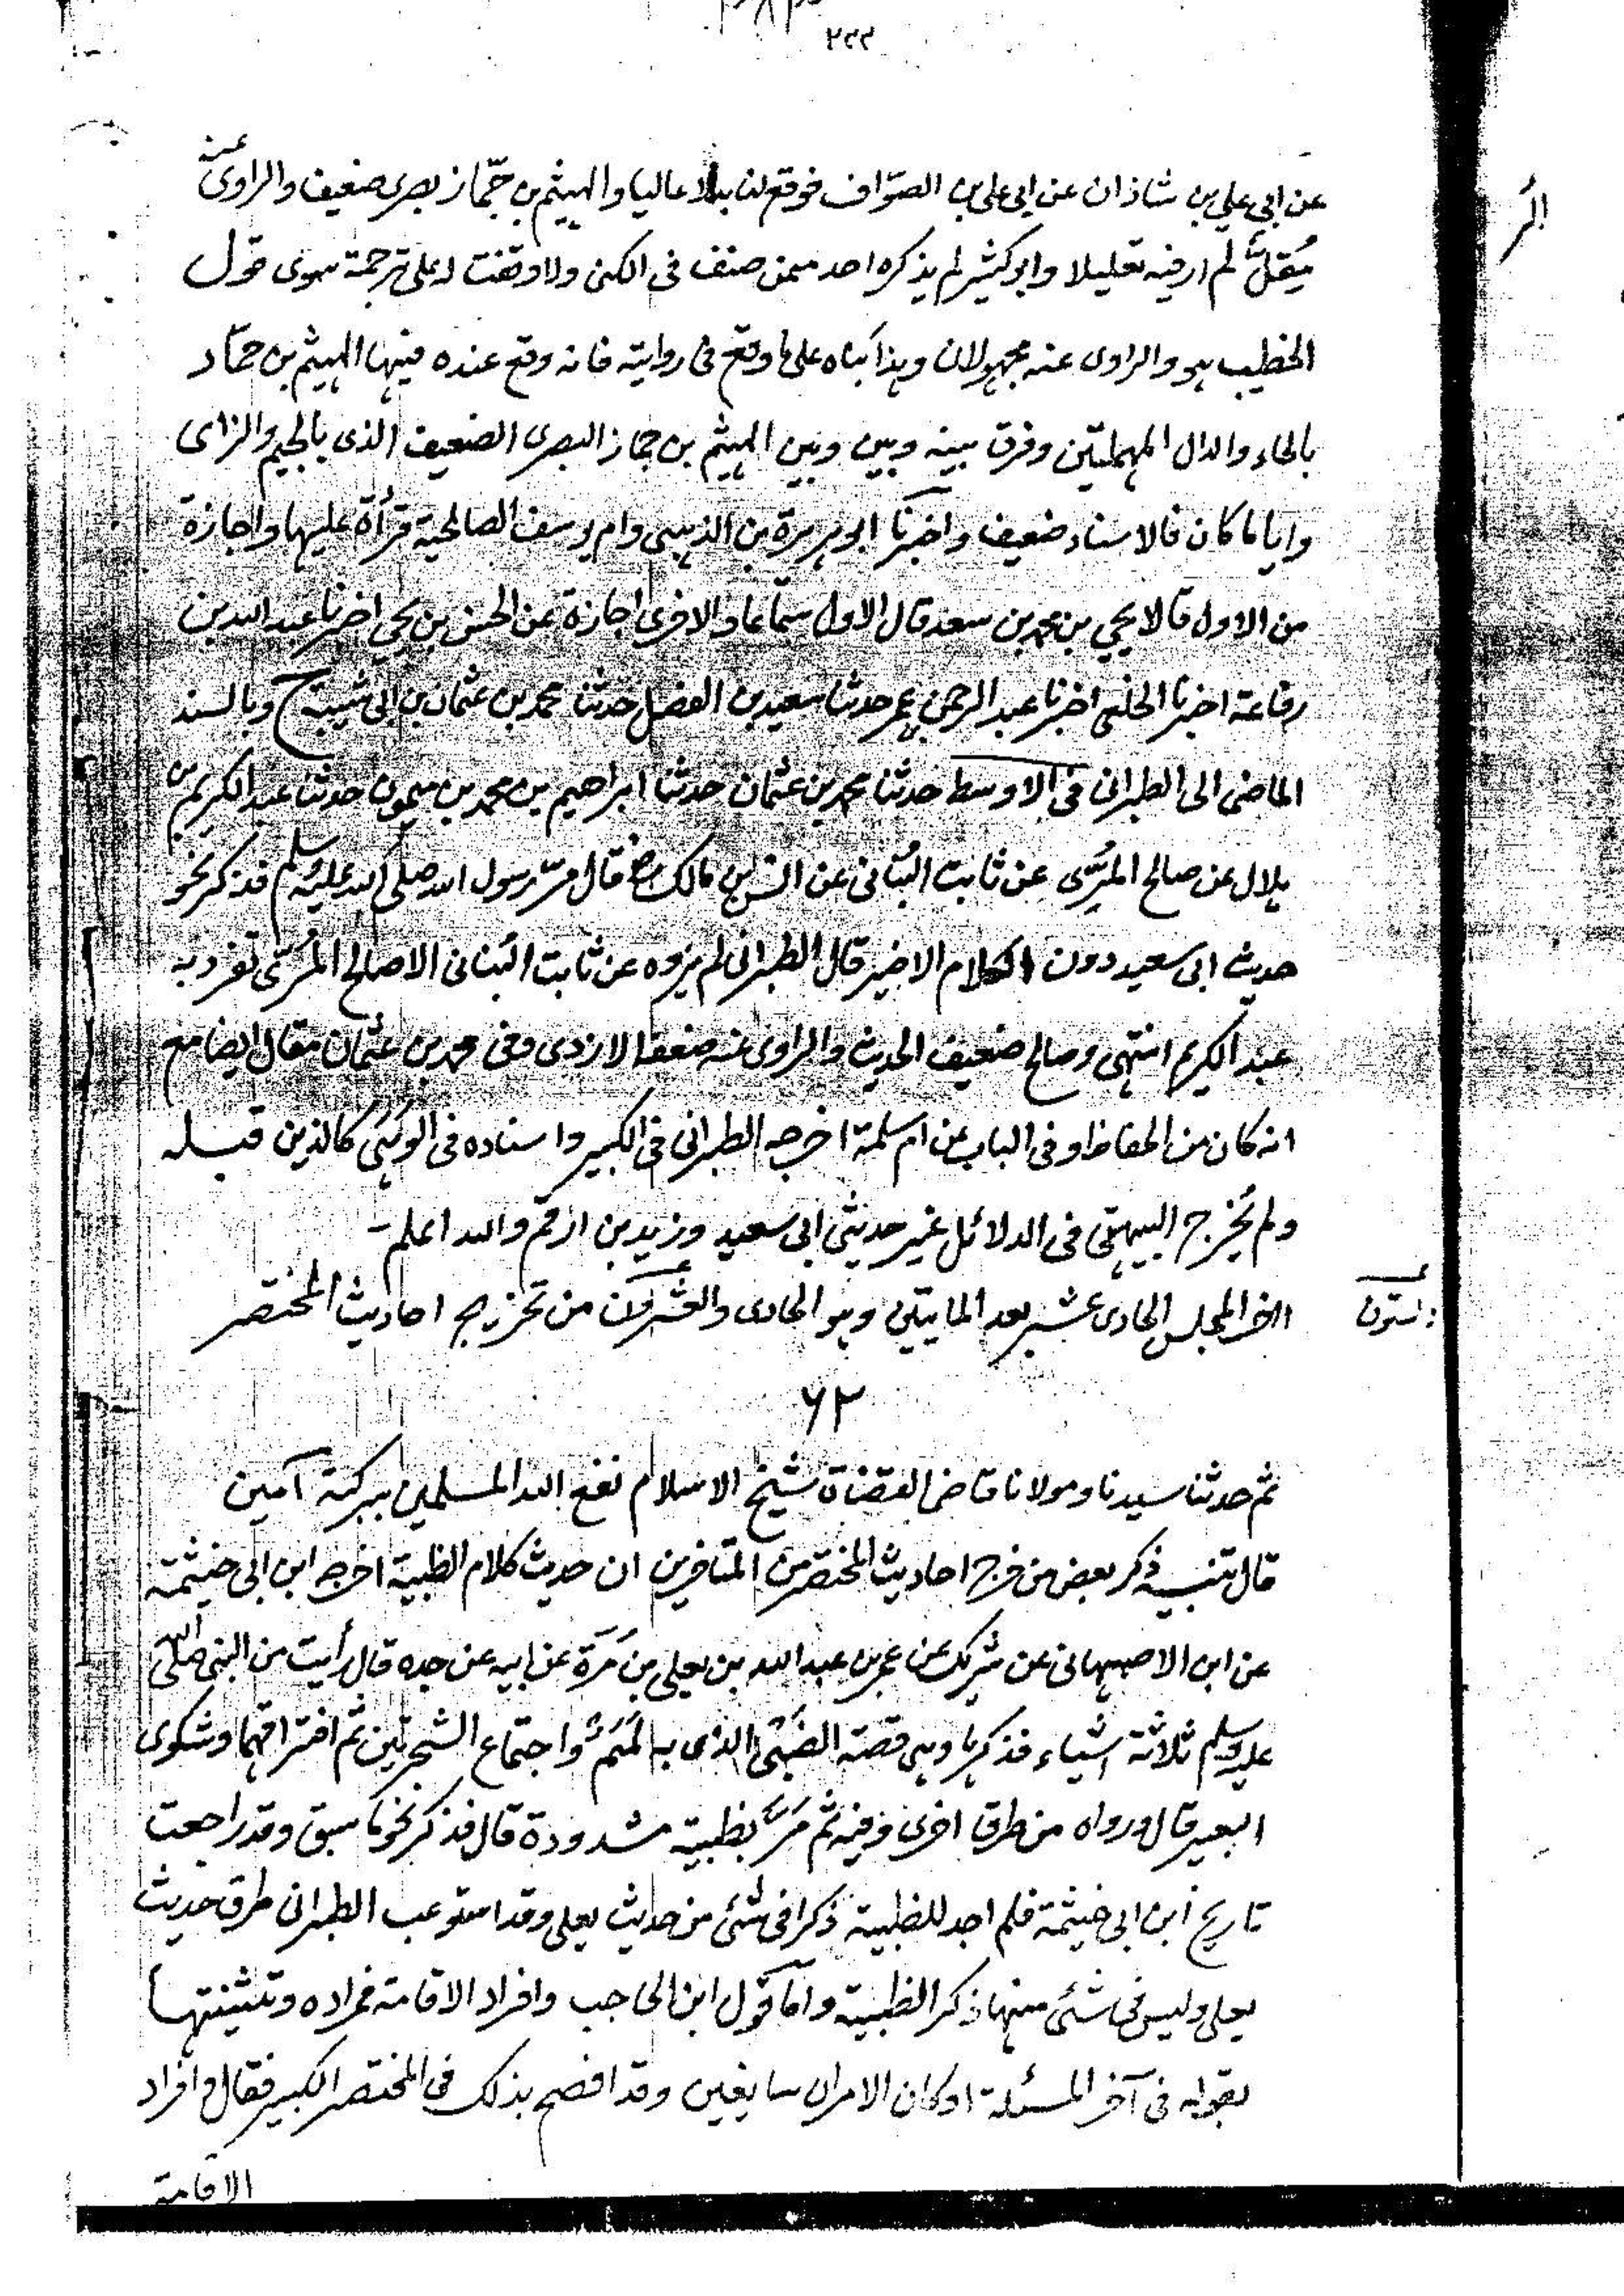 ٢٤٤
عن ابي علي بن شاذان عن ابي علي بن الصوّاف فوقع لنا بدلا عاليا والهيثم بن جمّاز بصرى ضعيف والراوى عنه
مُقلّ لم ار فيه تعليلا وابو كثير لم يذكره احد ممن صنف فى الكنى ولا وقفت له على ترجمة سوى قول
الخطيب هو والراوى عنه مجهولان وهذا بناه على ما وقع فى روايته فانه وقع عنده فيها الهيثم بن حمّاد
بالحاء والدال المهملتين وفرق بينه وبين وبين الهيثم بن جماز البصرى الضعيف الذى بالجيم والزاى
وايا ما كان فالاسناد ضعيف واخبرنا ابو هريرة بن الذهبى وام يوسف الصالحية قرأة عليها واجازة
من الاول قالا يحيى بن محمد بن سعد قال الاول سماعا والاخرى اجازة عن الحسن بن يحيى اخبرنا عبد الله بن
رفاعة اخبرنا الخلعى اخبرنا عبد الرحمن بن عمر حدثنا سعيد بن الفضل حدثنا محمد بن عثمان بن ابى شيبة ح وبالسند
الماضى الى الطبرانى فى الاوسط حدثنا محمد بن عثمان حدثنا ابراهيم بن محمد بن ميمون حدثنا عبد الكريم بن
هلال عن صالح المرّى عن ثابت البُنانى عن انس بن مالك رضـ قال مرّ رسول الله صلى الله عليه وسلم فذكر نحو
حديث ابى سعيد دون الكلام الاخير قال الطبرانى لم يروه عن ثابت البُنانى الا صالح المُرّى تفرد به
عبد الكريم انتهى وصالح ضعيف الحديث والراوى عنه ضعفه الازدى وفى محمد بن عثمان مقال ايضا مع
انه كان من الحفاظ وفى الباب عن ام سلمة اخرجه الطبرانى فى الكبير واسناده فى الوَهَى كالذين قبله
ولم يُخرج البيهقى فى الدلائل غير حديثى ابى سعيد وزيد بن ارقم والله اعلم -
اخر المجلس الحادى عشر بعد المايتين وهو الحادى والعشرون من تخريج احاديث المختصر
والستون
٦٢
ثم حدثنا سيدنا ومولانا قاضى القضاة شيخ الاسلام نفع الله المسلمين ببركته آمين
قال تنبيه ذكر بعض من خرج احاديث المختصر من المتاخرين ان حديث كلام الظبية اخرجه ابن ابى خيثمة
عن ابن الاصبهانى عن شريك عن عمر بن عبد الله بن يعلى بن مُرَّة عن ابيه عن جده قال رأيت من النبى صلى الله
عليه وسلم ثلاثة اشياء فذكرها وهى قصة الصَبِّى الذى به لَمَمٌ واجتماع الشجرتين ثم افتراقهما وشكوى
البعير قال ورواه من طرق اخرى وفيه ثم مَرَّ بظبية مشدودة قال فذكر نحو ما سبق وقد راجعت
تاريخ ابن ابى خيثمة فلم اجد للظبية ذكرا فى شئ من حديث يعلى وقد استوعب الطبرانى طرق حديث
يعلى وليس فى شئ منها ذكر الظبية واما قول ابن الحاجب وافراد الاقامة فمراده وتثنيتها
بقوله فى آخر المسئلة او كان الامران سايغين وقد افصح بذلك فى المختصر الكبير فقال وافراد
الاقامة